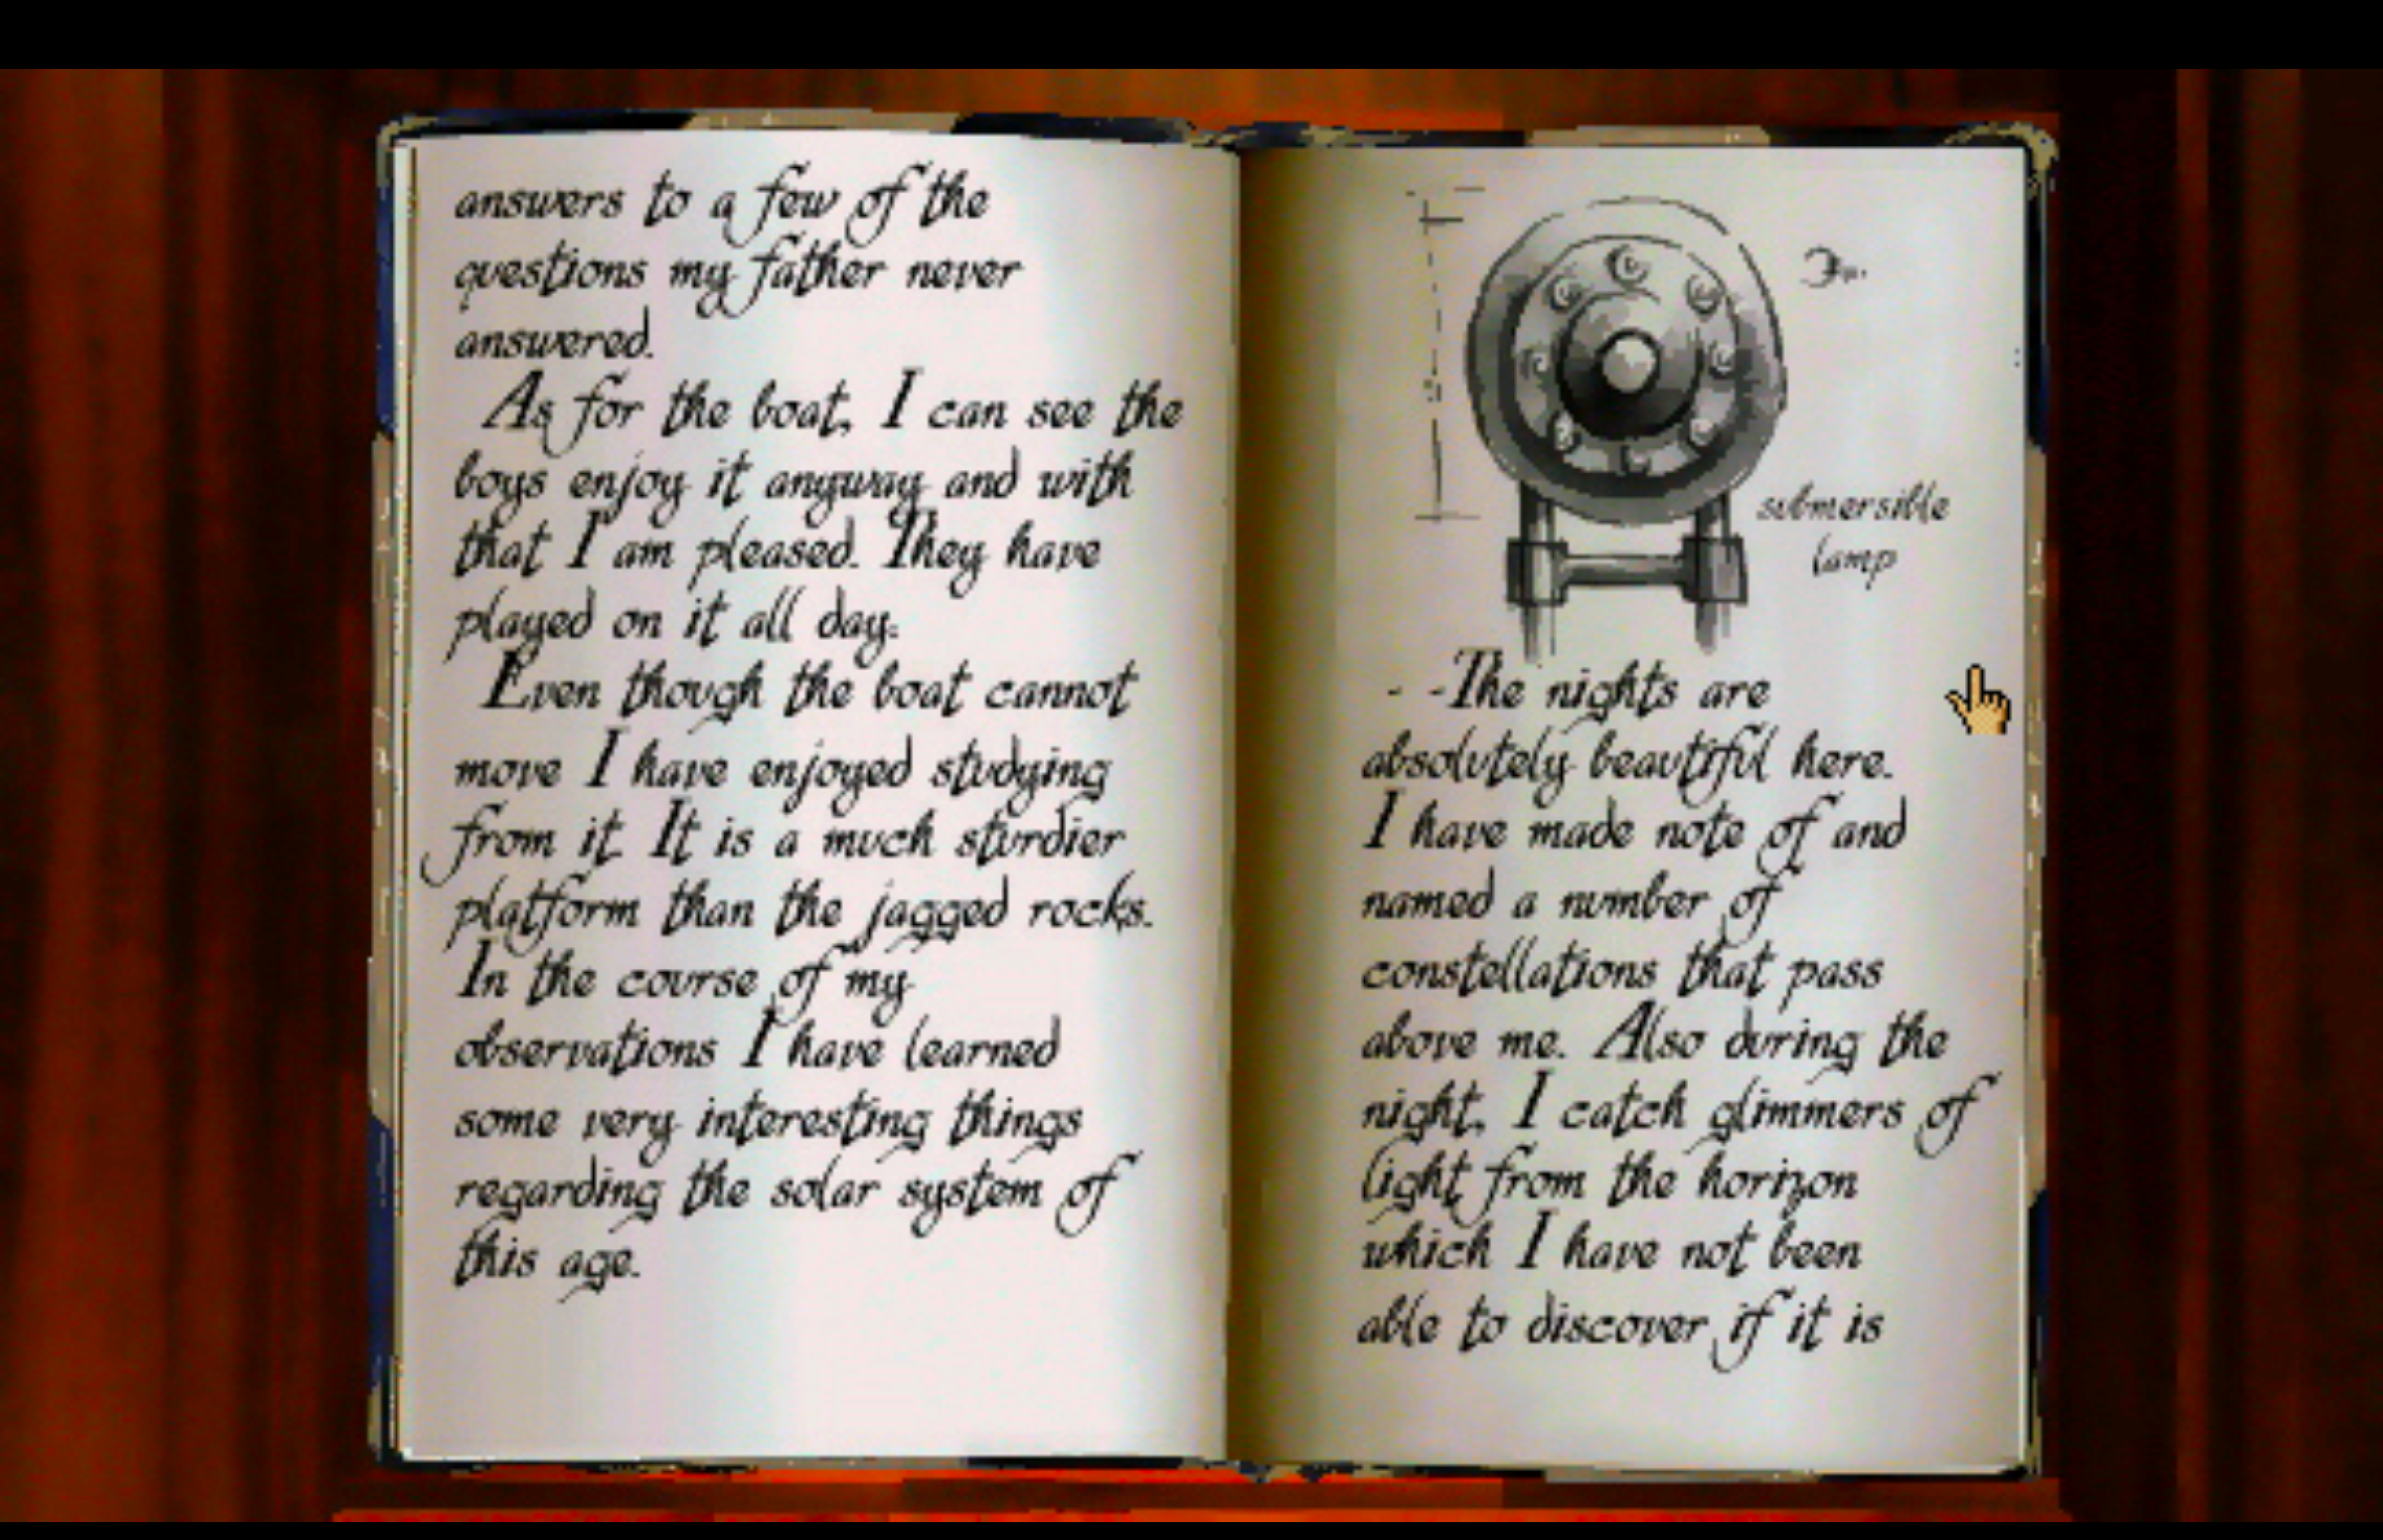 answers to a few of the
questions my father never
answered.
As for the boat, I can see the
boys enjoy it anyway and with
that I am pleased. They have
played on it all day.
Even though the boat cannot
move I have enjoyed studying
from it. It is a much sturdier
platform than the jagged rocks.
In the course of my
observations I have learned
some very interesting things
regarding the solar system of
this age.
submersible
lamp
- -The nights are
absolutely beautiful here.
I have made note of and
named a number of
constellations that pass
above me. Also during the
night, I catch glimmers of
light from the horizon
which I have not been
able to discover if it is